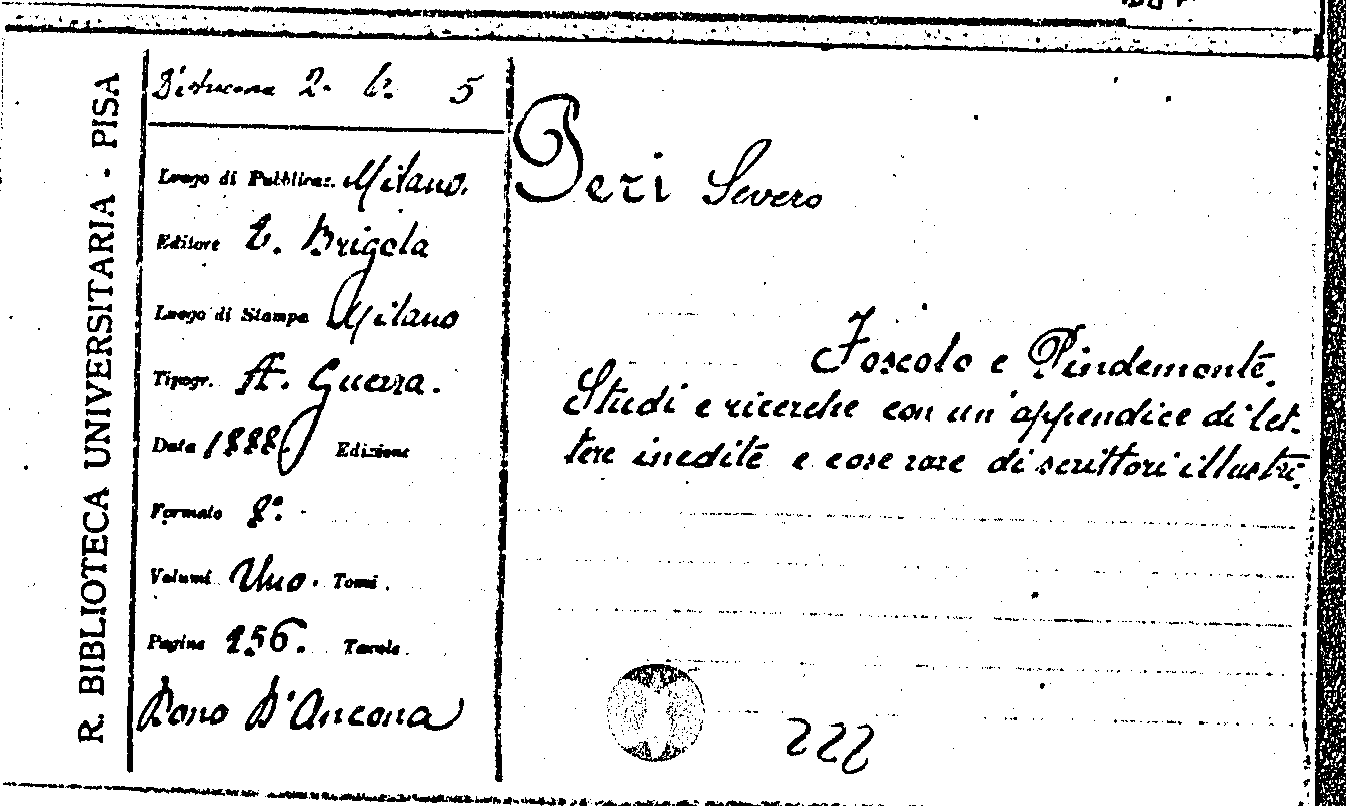 R. BIBLIOTECA UNIVERSITARIA - PISA
D'Ancona 2. 6. 5
Luogo di Pubblicaz. Milano.
Editore L. Brigola
Luogo di Stampa Milano
Tipogr. A. Guerra.
Data 1888. Edizione
Formato 8°.
Volumi Uno. Tomi.
Pagine 256. Tavole.
Dono D'Ancona
Peri Severo
Foscolo e Pindemonte.
Studi e ricerche con un'appendice di let-
tere inedite e cose rare di scrittori illustri.
222